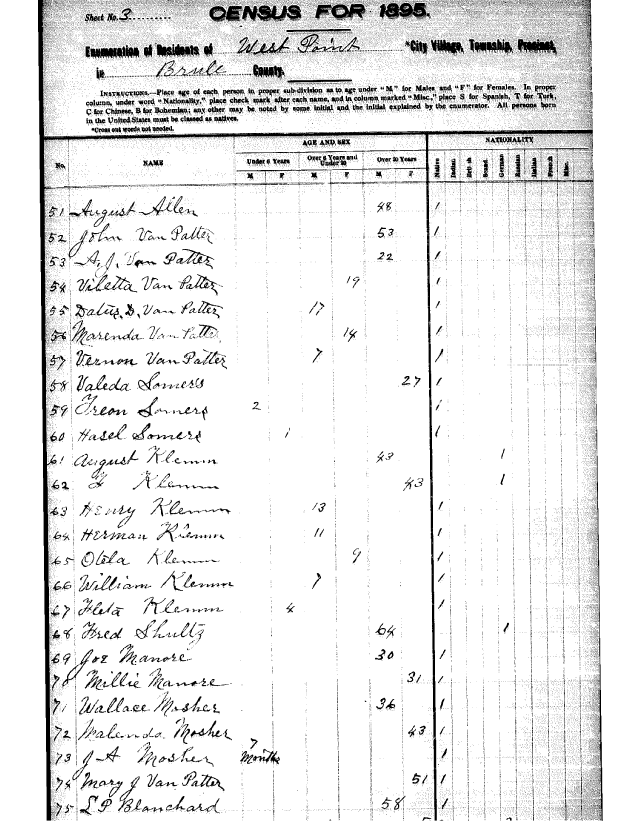 Sheet No. 3
CENSUS FOR 1895.
Enumeration of Residents of West Point *City Village, Township, Precinct,
in Brule County.
INSTRUCTIONS.—Place age of each person in proper sub-division as to age under "M" for Males and "F" for Females. In proper
column, under word "Nationality," place check mark after each name, and in column marked "Misc.," place S for Spanish, T for Turk,
C for Chinese, B for Bohemian, any other may be noted by some initial and the initial explained by the enumerator. All persons born
in the United States must be classed as natives.
*Cross out words not needed.
No. NAME AGE AND SEX NATIONALITY
Under 6 Years Over 6 Years and Under 20 Years Over 20 Years
M F M F M F Native Indian English Scand. German Russian Italian French Misc.
51 August Allen 48 1
52 John Van Patter 53 1
53 A. J. Van Patter 22 1
54 Viletta Van Patter 19 1
55 Datus D. Van Patter 17 1
56 Marenda Van Patter 14 1
57 Vernon Van Patter 7 1
58 Valeda Somers 27 1
59 Treon Somers 2 1
60 Hasel Somers 1 1
61 August Klemm 43 1
62 Klemm 43 1
63 Henry Klemm 13 1
64 Herman Klemm 11 1
65 Otela Klemm 9 1
66 William Klemm 7 1
67 Fleta Klemm 4 1
68 Fred Shultz 64 1
69 Joe Manore 30 1
70 Millie Manore 31 1
71 Wallace Mosher 36 1
72 Malenda Mosher 43 1
73 J A Mosher 7 Months 1
74 Mary J Van Patter 51 1
75 E P Blanchard 58 1